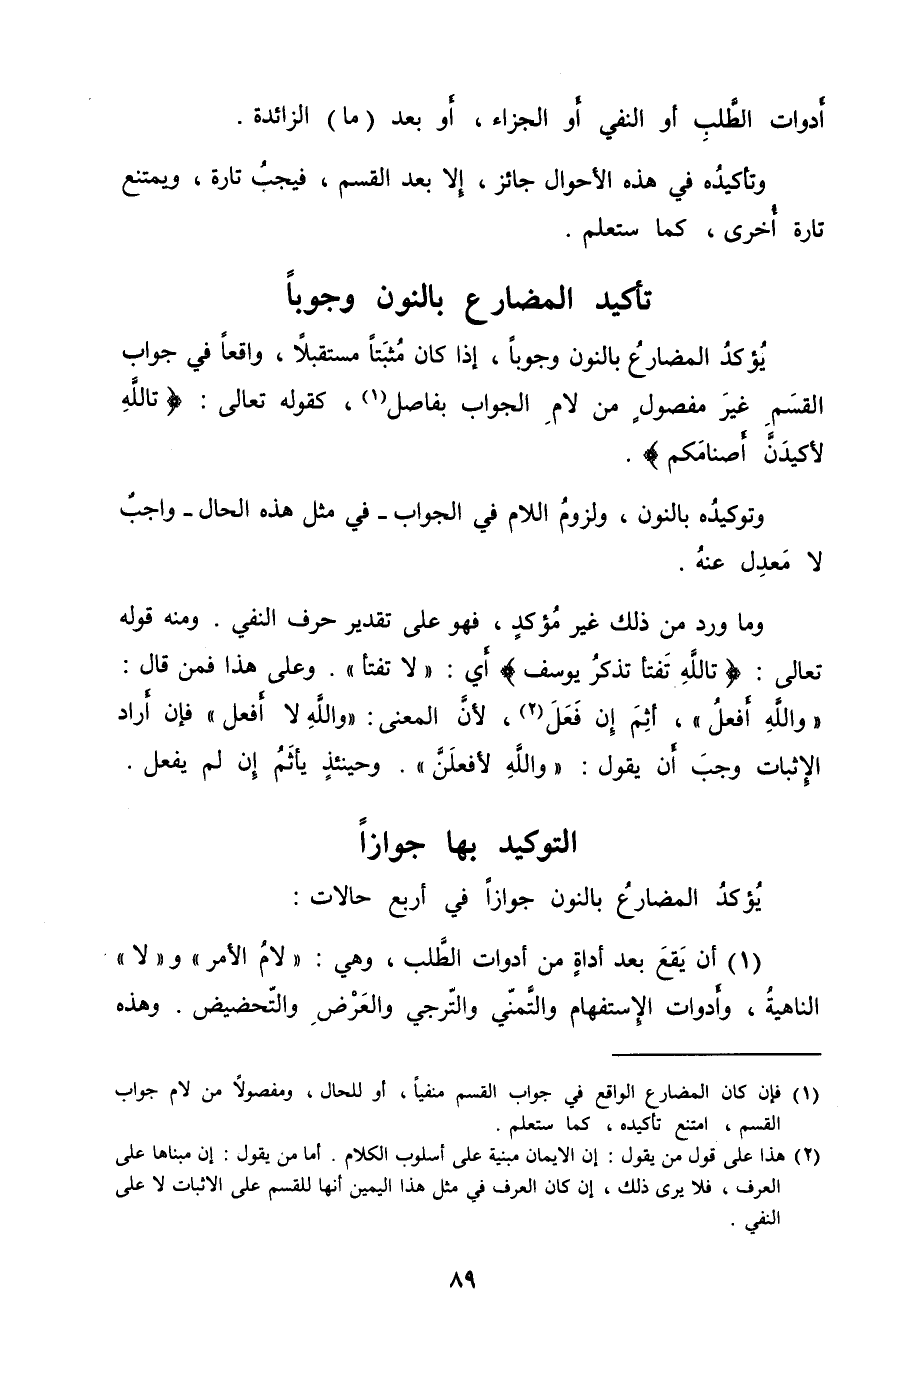 أَدوات الطَّلبِ أو النفي أَو الجزاء ، أَو بعد ( ما ) الزائدة .
وتأكيدُه في هذه الأحوال جائز ، إلا بعد القسم ، فيجبُ تارة ، ويمتنع
تارة أُخرى ، كما ستعلم .
تأكيد المضارع بالنون وجوباً
يُؤكدُ المضارعُ بالنون وجوباً ، إذا كان مُثبَتاً مستقبلًا ، واقعاً في جواب
القسَمِ غيرَ مفصولٍ من لامِ الجواب بفاصل(١) ، كقوله تعالى : ﴿ تاللَّهِ
لأكيدَنَّ أَصنامَكم ﴾ .
وتوكيدُه بالنون ، ولزومُ اللام في الجواب ـ في مثل هذه الحال ـ واجبٌ
لا مَعدِل عنهُ .
وما ورد من ذلك غير مُؤكدٍ ، فهو على تقدير حرف النفي . ومنه قوله
تعالى : ﴿ تاللَّهِ تَفتأ تذكرُ يوسف ﴾ أَي : « لا تفتأ » . وعلى هذا فمن قال :
« واللَّهِ أَفعلُ » ، أثِمَ إن فَعَلَ(٢) ، لأنَّ المعنى : «واللَّهِ لا أَفعل » فإن أَراد
الإثبات وجبَ أَن يقول : « واللَّهِ لأفعلَنَّ » . وحينئذٍ يأثَمُ إن لم يفعل .
التوكيد بها جوازاً
يُؤكدُ المضارعُ بالنون جوازاً في أربع حالات :
(١) أن يَقعَ بعد أداةٍ من أدوات الطَّلب ، وهي : « لامُ الأمر » و« لا »
الناهيةُ ، وأَدوات الإستفهام والتَّمنّي والتّرجي والعَرْضِ والتّحضيض . وهذه
(١) فإن كان المضارع الواقع في جواب القسم منفياً ، أو للحال ، ومفصولاً من لام جواب
القسم ، امتنع تأكيده ، كما ستعلم .
(٢) هذا على قول من يقول : إن الايمان مبنية على أسلوب الكلام . أما من يقول : إن مبناها على
العرف ، فلا يرى ذلك ، إن كان العرف في مثل هذا اليمين أنها للقسم على الاثبات لا على
النفي .
٨٩